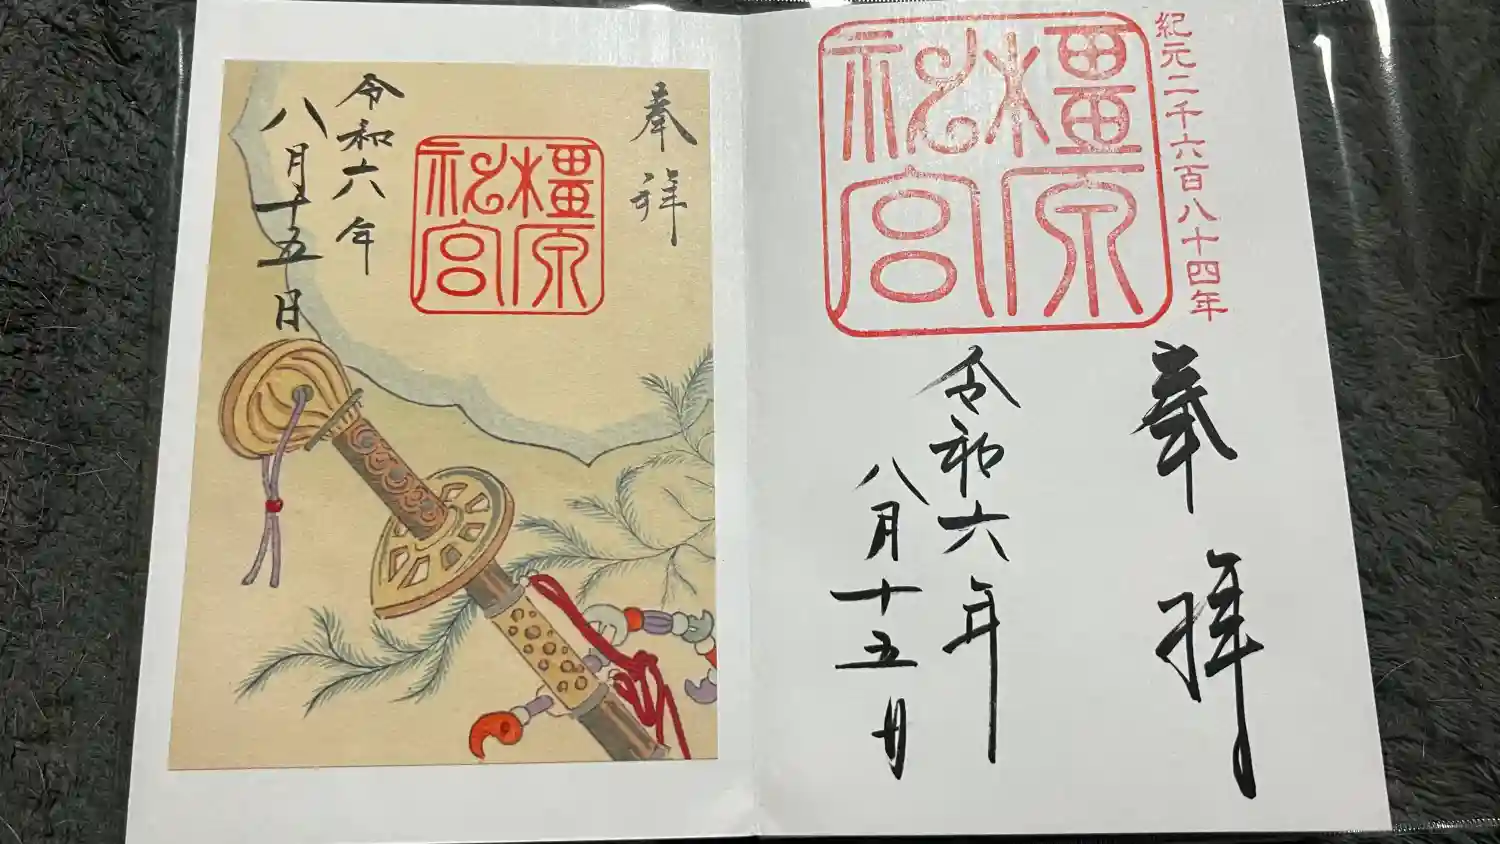 紀元二千六百八十四年
橿原
神宮
奉拝
令和六年
八月十五日
奉拝
橿原
神宮
令和六年
八月十五日